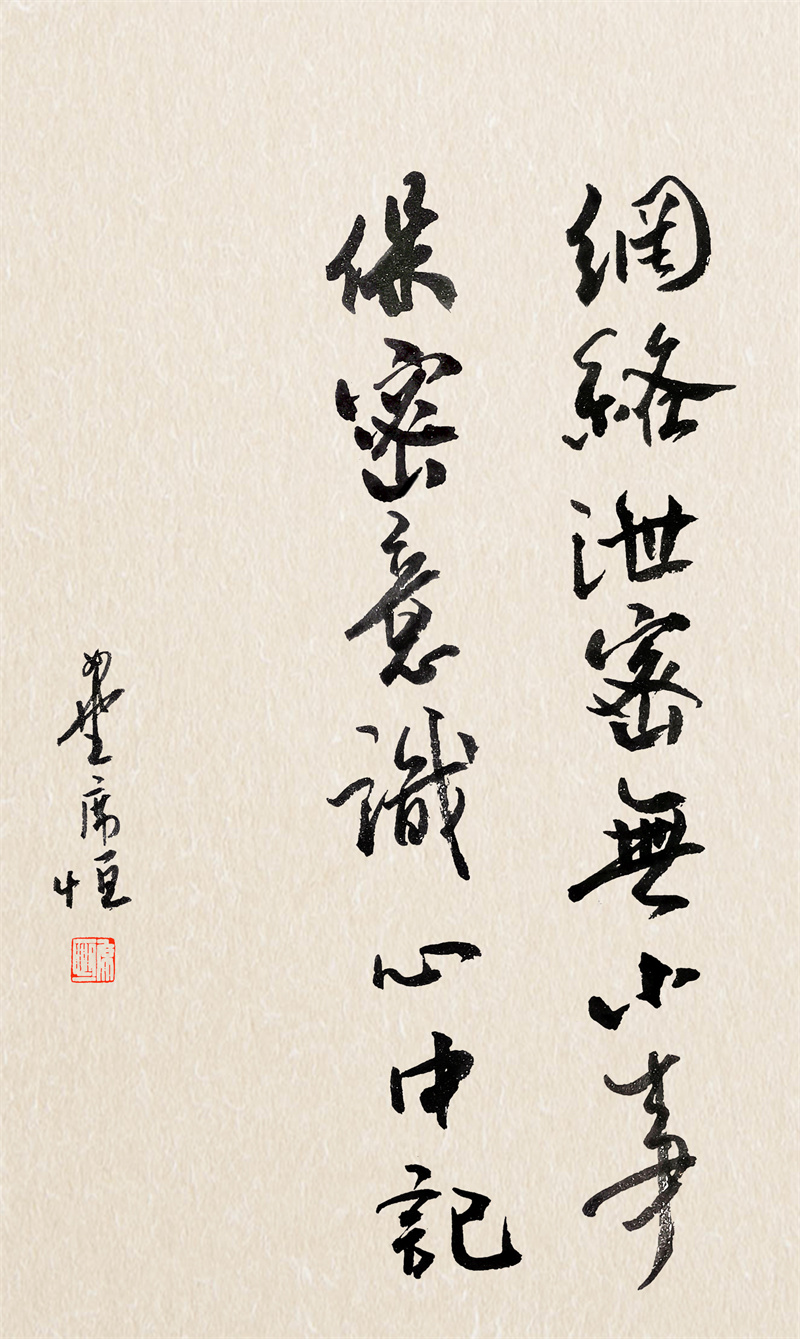 網絡泄密無小事
保密意識心中記
席恒